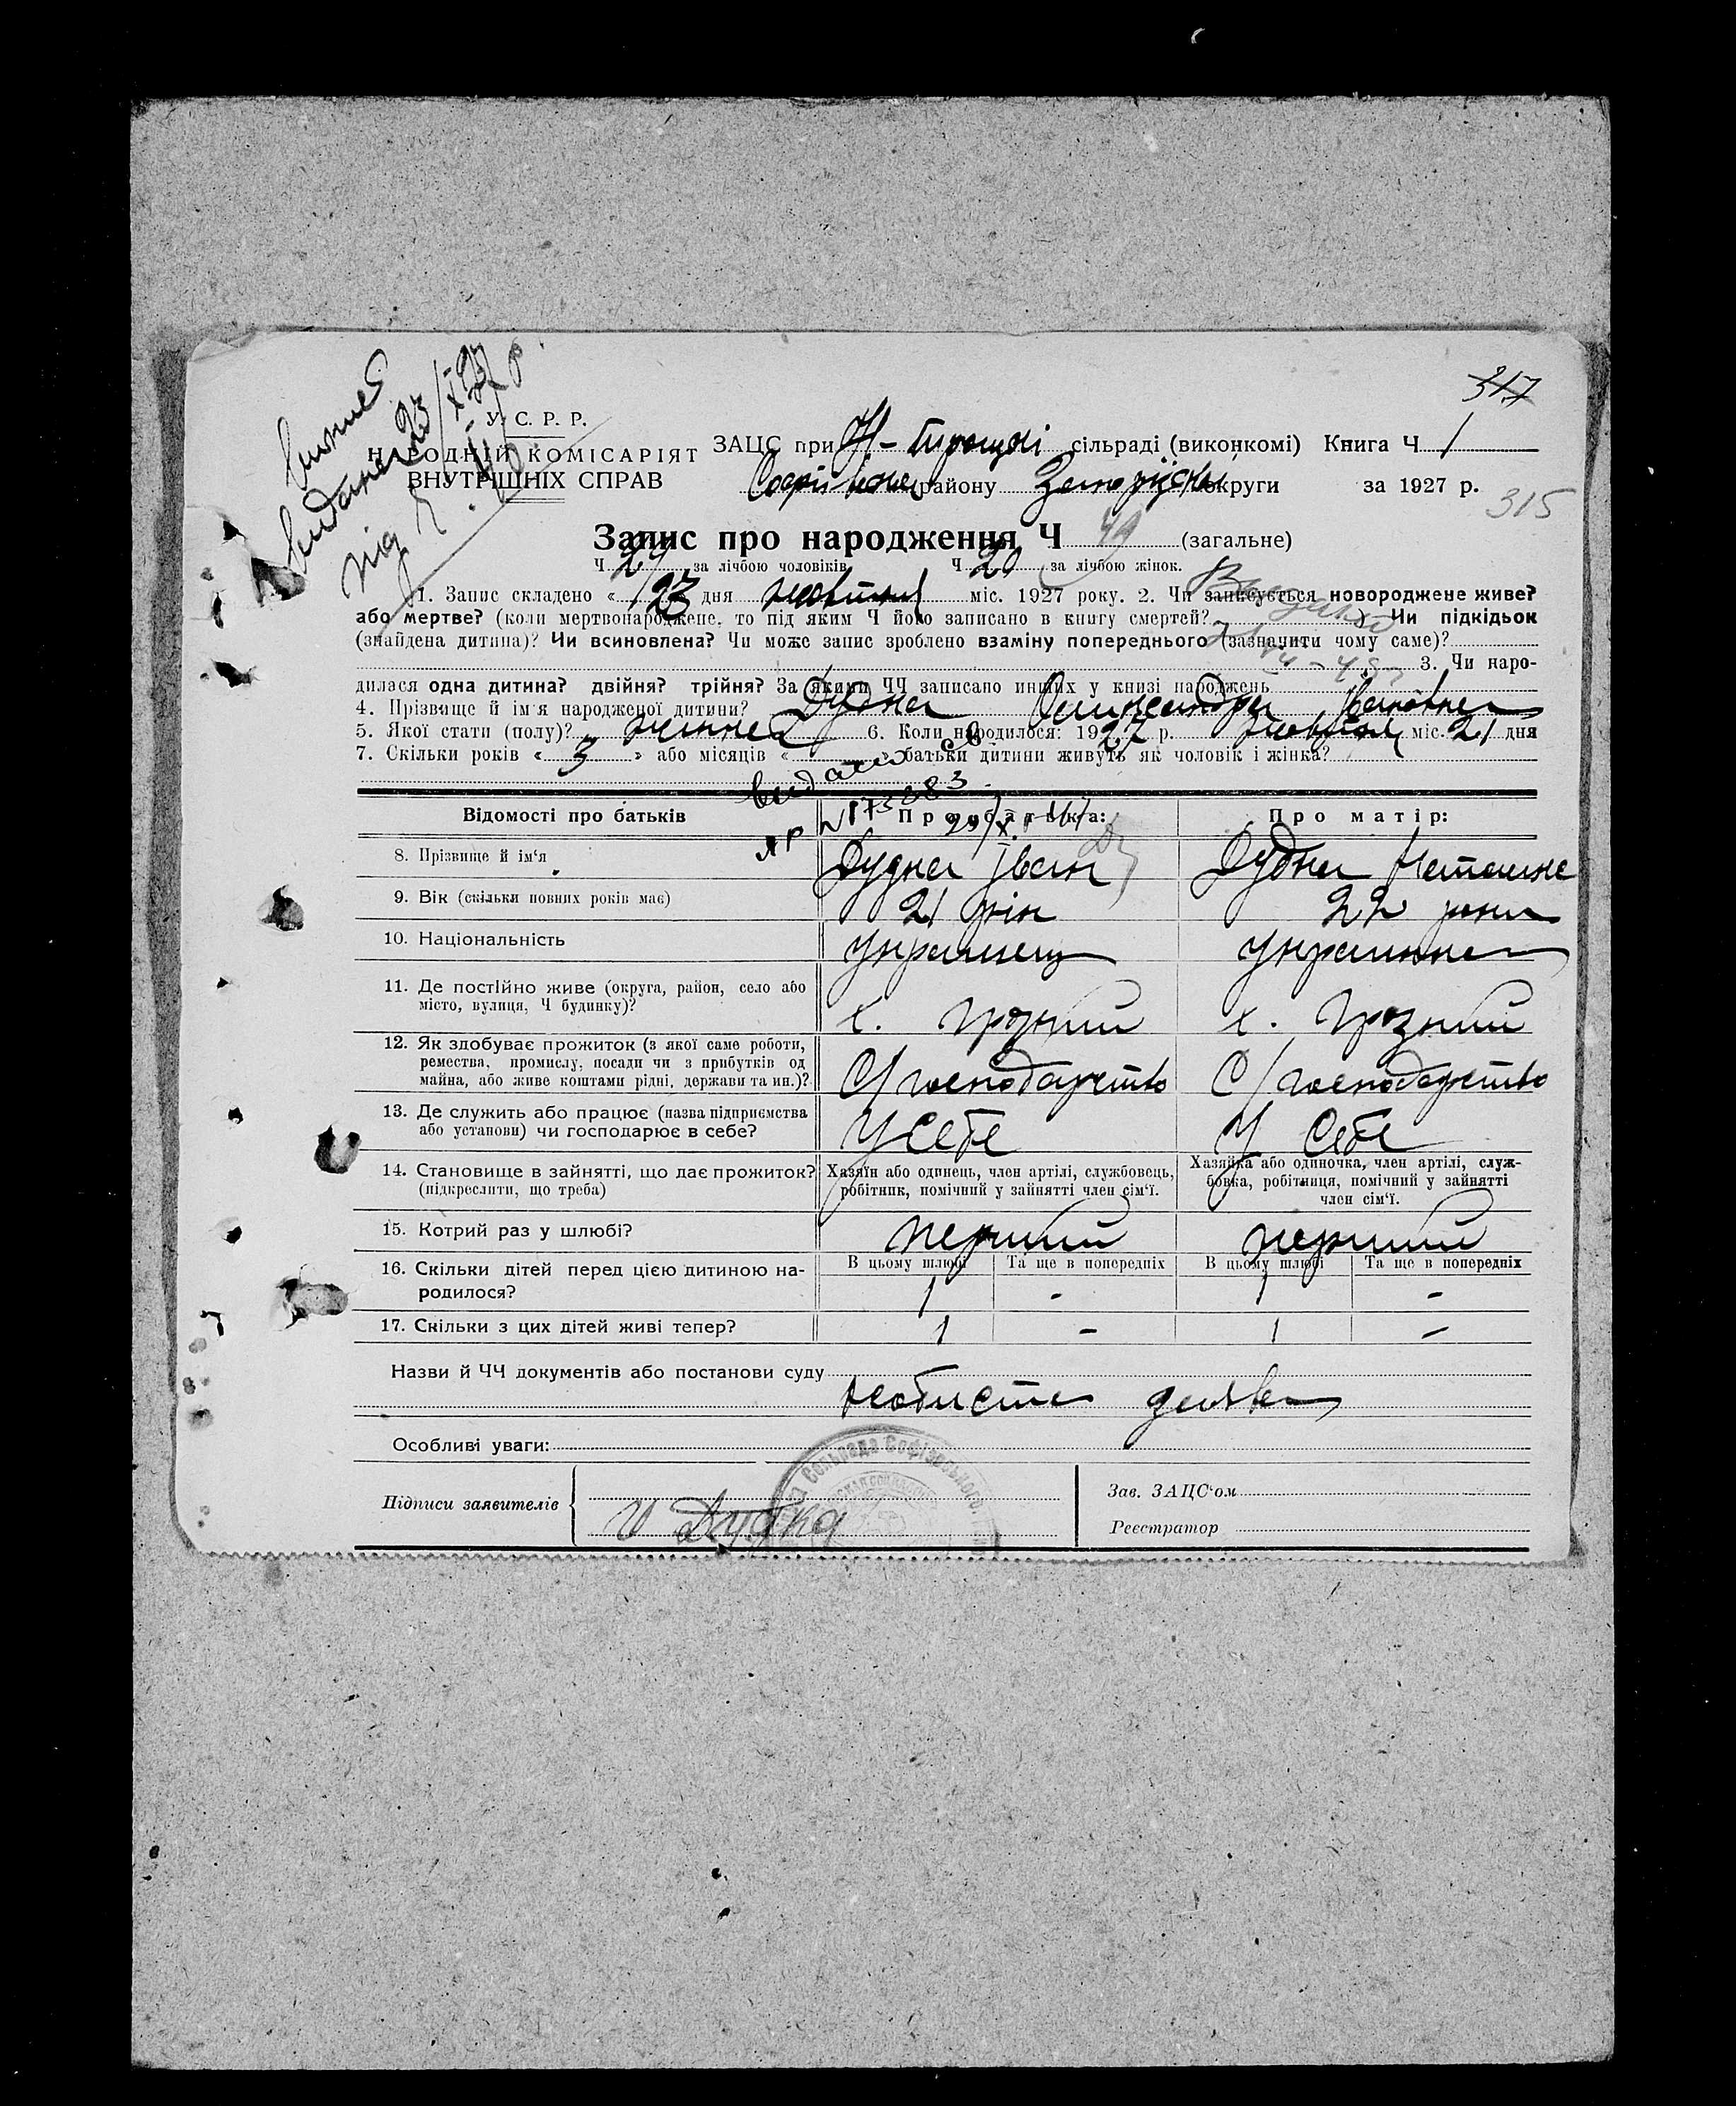 317
виписє
видана 23/X 27 р
під Ч. 40
У. С. Р. Р.
НАРОДНІЙ КОМІСАРІЯТ
ВНУТРІШНІХ СПРАВ
ЗАЦС при Н- сільраді (виконкомі) Книга Ч 1
району округи за 1927 р.
315
Запис про народження Ч (загальне)
Ч за лічбою чоловіків Ч 20 за лічбою жінок.
1. Запис складено « 23 дня жовтня міс. 1927 року. 2. Чи записується новороджене живе?
або мертве? (коли мертвонароджене, то під яким Ч його записано в книгу смертей? ) Чи підкідьок
(знайдена дитина)? Чи всиновлена? Чи може запис зроблено взаміну попереднього (зазначити чому саме)?
3. Чи наро-
дилася одна дитина? двійня? трійня? За якими ЧЧ записано инших у книзі народжень
4. Прізвище й ім'я народженої дитини? Дудка Олександра Івановна
5. Якої стати (полу)? 6. Коли народилося: 1927 р. жовтня міс. 21 дня
7. Скільки років « 3 » або місяців « » батьки дитини живуть як чоловік і жінка?
видано св
ЯР № 173883
Відомості про батьків Про батька: Про матір:
8. Прізвище й ім'я Дудка Іван Дудка
9. Вік (скільки повних років має) 21 рік 22 роки
10. Національність українець українка
11. Де постійно живе (округа, район, село або х. Грозний х. Грозний
місто, вулиця, Ч будинку)?
12. Як здобуває прожиток (з якої саме роботи,
ремества, промислу, посади чи з прибутків од
майна, або живе коштами рідні, держави та ин.)? С/господарство С/господарство
13. Де служить або працює (назва підприємства
або установи) чи господарює в себе? У себе У себе
14. Становище в зайнятті, що дає прожиток? Хазяїн або одинець, член артілі, службовець, Хазяйка або одиночка, член артілі, служ-
(підкреслити, що треба) робітник, помічний у зайнятті член сім'ї. бовка, робітниця, помічний у зайнятті
член сім'ї.
15. Котрий раз у шлюбі? перший перший
16. Скільки дітей перед цією дитиною на- В цьому шлюбі Та ще в попередніх В цьому шлюбі Та ще в попередніх
родилося? 1 - 1 -
17. Скільки з цих дітей живі тепер? 1 - 1 -
Назви й ЧЧ документів або постанови суду
особиста заява
Особливі уваги:
Сільрада Софіївського
Підписи заявителів И Дудка
Зав. ЗАЦС'ом
Реєстратор